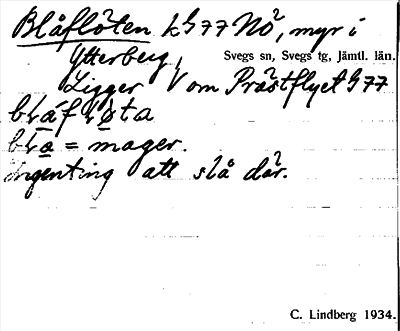 Blåflöten k S77 NÖ, myr i
Ytterberg,
Svegs sn, Svegs tg, Jämtl. län.
Ligger V om Prästflyet S77
blå = mager.
Ingenting att slå där.
C. Lindberg 1934.